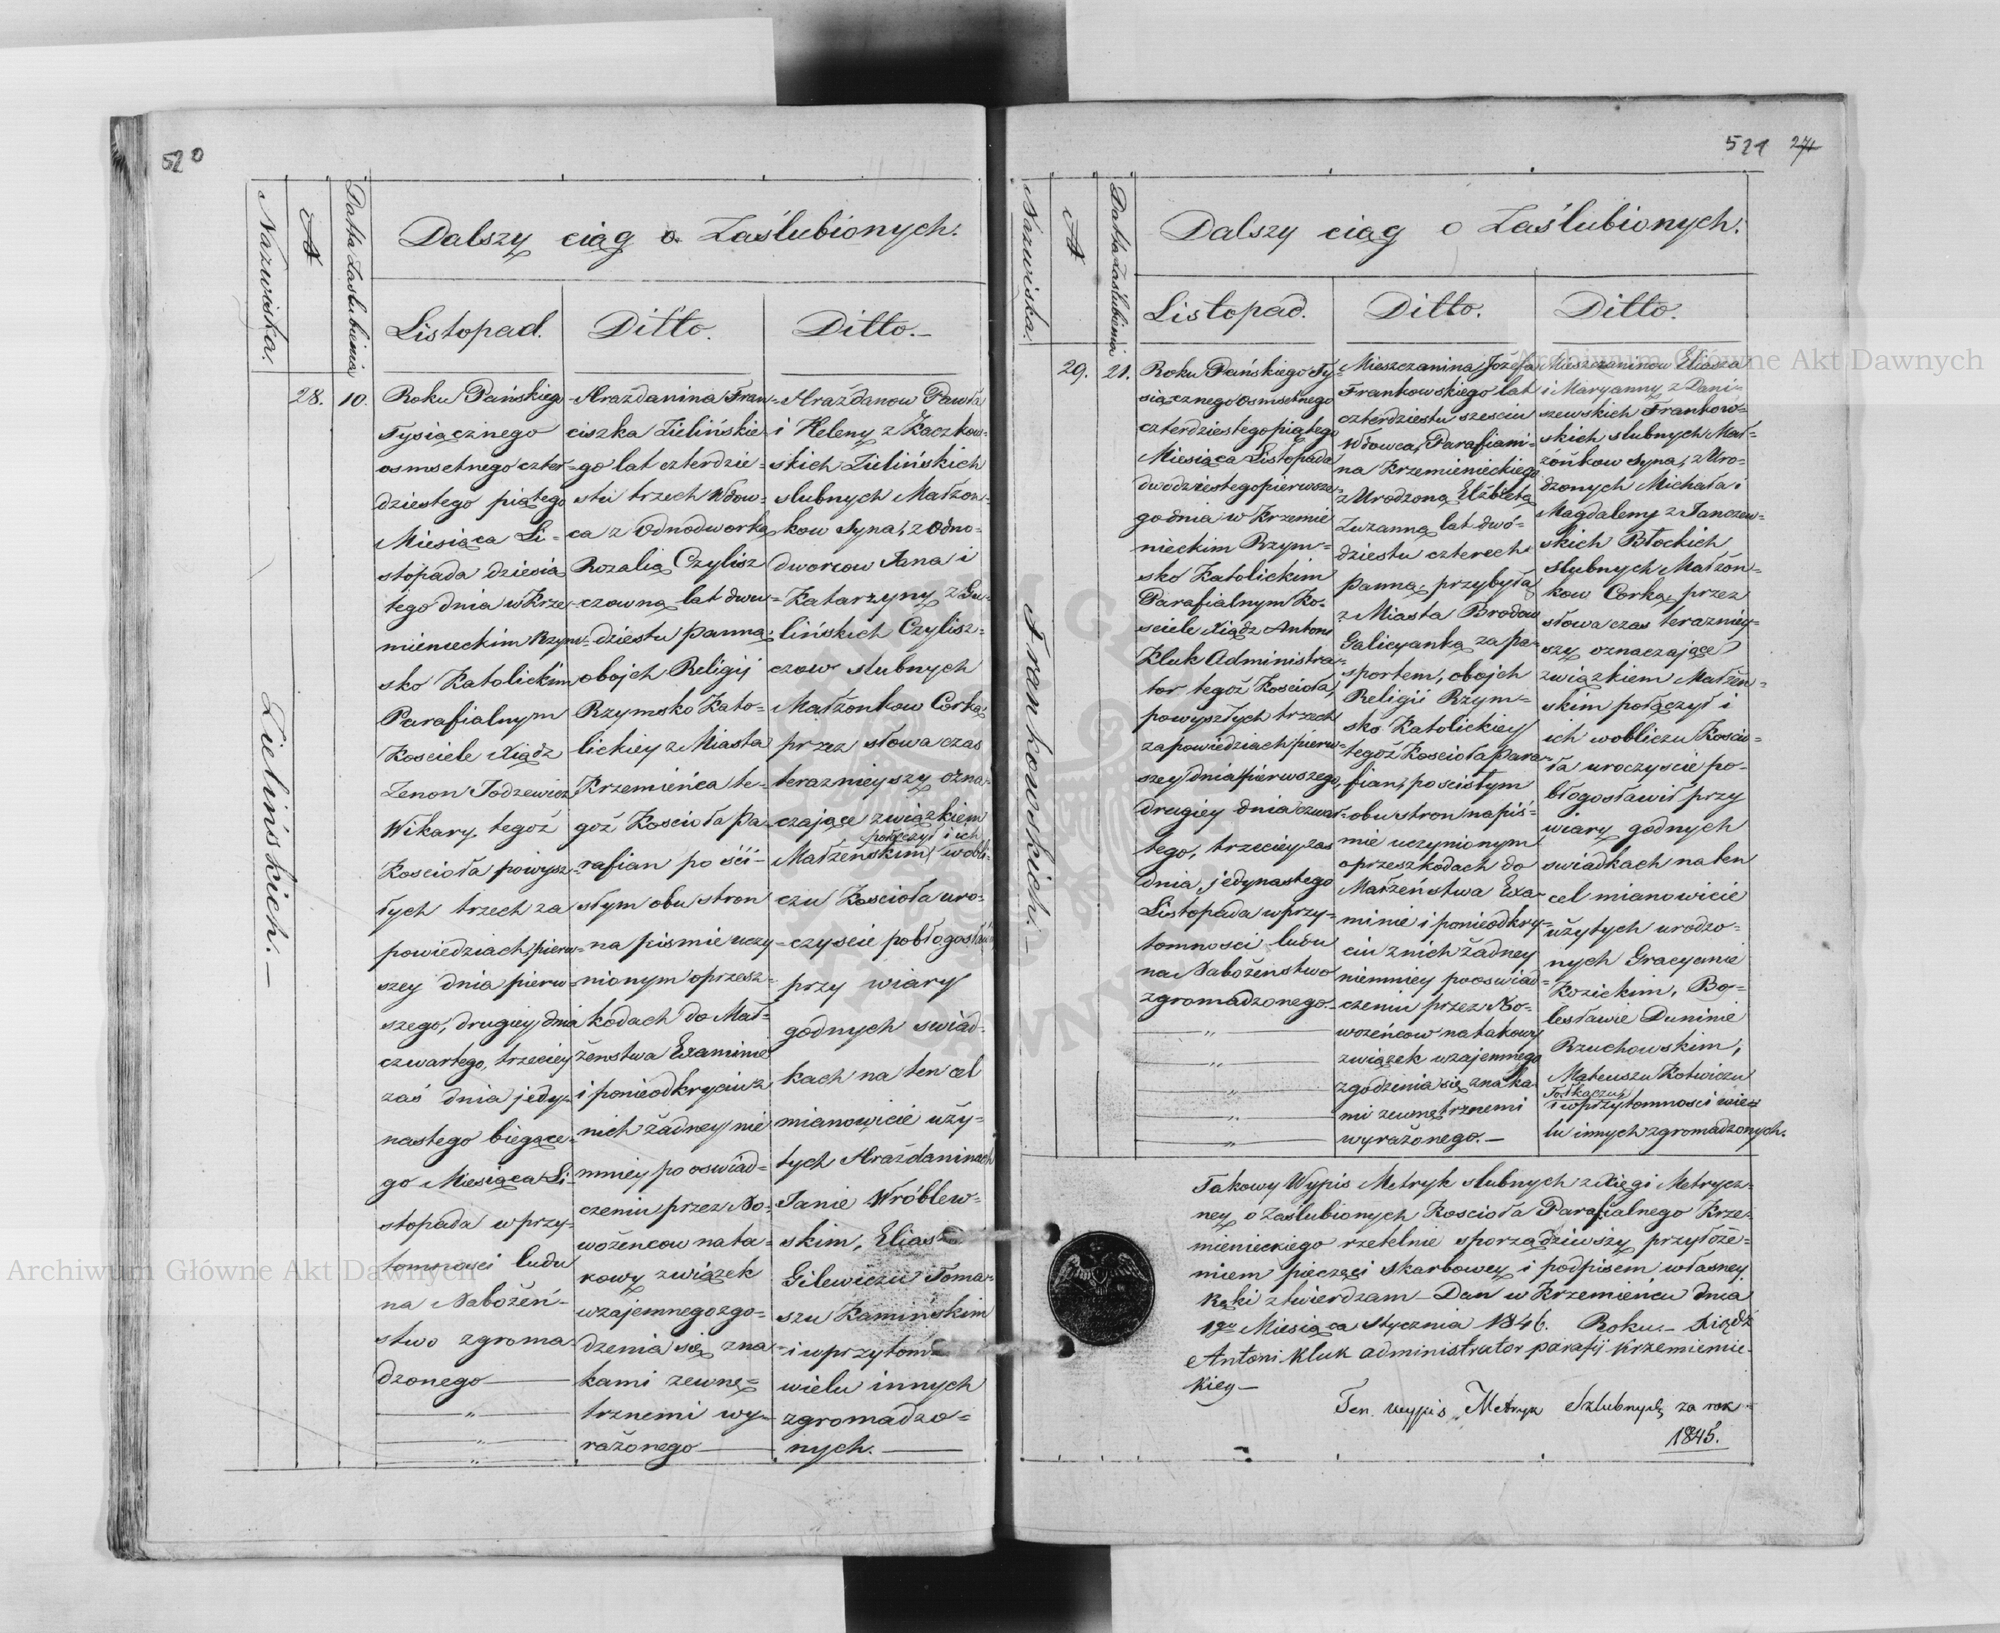 520
Nazwiska.
№
Datta Zaslubienia
Dalszy ciąg o Zaślubionych.
Listopad.
Ditto.
Ditto.
28.
10.
Zielińskich.
Roku Pańskieg
Tysiącznego
osmsetnego czter-
dziestego piątego
Miesiąca Li-
stopada dziesią
tego dnia w Krze-
mienieckim Rzym-
sko Katolickim
Parafialnym
Kosciele Xiądz
Zenon Jodzewicz
Wikary tegoż
Kościoła powysz-
łych trzech za
powiedziach, pierw-
szey dnia pierw-
szego, drugiey dnia
czwartego, trzeciey
zaś dnia jedy-
nastego bieżące-
go Miesiąca Li-
stopada w przy-
tomności ludu
na Nabożeń-
stwo zgroma-
dzonego
Hrażdanina Fran-
ciszka Zielińskie-
go lat czterdzie-
stu trzech Wdow-
ca z Odnodworką
Rozalią Czylisz-
czowną lat dwu-
dziestu panną,
obojch Religij
Rzymsko Kato-
lickiey z Miasta
Krzemieńca te-
goż Kościoła Pa-
rafian po ści-
słym obu stron
na pismie uczy-
nionym oprzesz-
kodach do Mał-
żenstwa Examinie
i ponieodkryciu z
nich żadney nie
mniey po oswiad-
czeniu przez No-
wożencow na ta-
kowy związek
wzajemnego zgo-
dzenia się zna-
kami zewnę-
trznemi wy-
rażonego
Hrażdanow Pawła
i Heleny z Kaczkow-
skich Zielińskich
slubnych Małżon-
kow Syna, z Odno-
dworcow Jana i
Katarzyny z Gu-
lińskich Czylisz-
czow slubnych
Małżonkow Corką,
przez słowa czas
terazniejszy ozna-
czające związkiem
Małżeńskim połączył i ich w obli-
czu Kościoła uro-
czyscie pobłogosławił
przy wiary
godnych swiad-
kach na ten cel
mianowicie uży-
tych Hrażdaninach
Janie Wróblew-
skim, Eliaszu
Gilewiczu Toma-
szu Kaminskim
i w przytom-
wielu innych
zgromadzo-
nych.
521 27
Nazwiska.
№
Datta Zaslubienia
Dalszy ciąg o Zaślubionych.
Listopad.
Ditto.
Ditto.
29.
21.
Frankowskich.
Roku Pańskiego Ty-
siącznego osmsetnego
czterdziestego piątego
Miesiąca Listopada
dwodziestego pierwsze-
go dnia w Krzemie
nieckim Rzym-
sko Katolickim
Parafialnym Ko-
sciele Xiądz Antoni
Kluk Administra-
tor tegoż Kościoła,
powyszłych trzech
zapowiedziach, pierw-
szey dnia pierwszego,
drugiey dnia czwar-
tego, trzeciey zas
dnia jedynastego
Listopada w przy-
tomnosci ludu
na Nabożenstwo
zgromadzonego.
Mieszczanina Józefa
Frankowskiego lat
czterdziestu szesciu
Wdowca, Parafiani-
na Krzemienieckiego
z Urodzoną Elżbietą
Zuzanną lat dwó-
dziestu czterech
panną, przybyłą
z Miasta Brodow
Galicyanką za pa-
sportem, obojch
Religii Rzym-
sko Katolickiey
tegoż Kościoła Para-
fian, po scisłym
obu stron na piś-
mie uczynionym
o przeszkodach do
Małżeństwa Exa-
minie i ponieodkry-
ciu z nich żadney
niemniey po oswiad-
czeniu przez No-
wożeńcow na takowy
związek wzajemnego
zgodzenia się znaka-
mi zewnętrznemi
wyrażonego.
Mieszczaninow Eliasza
i Maryanny z Dani-
szewskich Frankow-
skich slubnych Mał-
żońkow Syna, z Uro-
dzonych Michała i
Magdaleny z Janczew-
skich Błockich
slubnych Małżon-
kow Corką, przez
słowa czas terazniey-
szy oznaczające
związkiem Małżeń-
skim połączył i
ich w obliczu Koscio-
ła uroczyscie po-
błogosławił przy
wiary godnych
swiadkach na ten
cel mianowicie
użytych urodzo-
nych Gracyanie
Kozickim, Bo-
lesławie Duninie
Rzuchowskim,
Mateuszu Kotwiczu
i w przytomnosci wie-
lu innych zgromadzonych.
Takowy Wypis Metryk slubnych z Xięgi Metrycz-
ney o Zaślubionych Kościoła Parafialnego Krze-
mienieckiego rzetelnie sporządziwszy przyłoże-
niem pieczęci skarbowey i podpisem własney
Ręki ztwierdzam - Dan w Krzemieńcu dnia
1go Miesiąca stycznia 1846. Roku. - Xiądz
Antoni Kluk administrator parafij Krzemienie-
kiey -
Ten wypis Metryk Szlubnych za rok
1845.
Archiwum Główne Akt Dawnych
Archiwum Główne Akt Dawnych